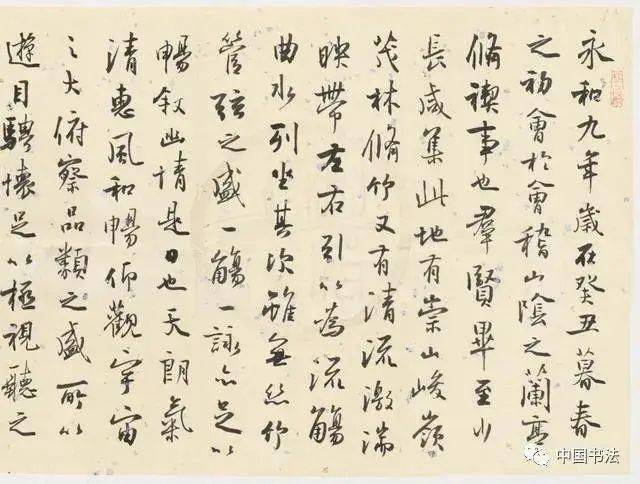 永和九年歲在癸丑暮春
之初會於會稽山陰之蘭亭
脩禊事也羣賢畢至少
長咸集此地有崇山峻嶺
茂林脩竹又有清流激湍
映帶左右引以為流觴
曲水列坐其次雖無絲竹
管弦之盛一觴一詠亦足以
暢叙幽情是日也天朗氣
清惠風和暢仰觀宇宙
之大俯察品類之盛所以
遊目騁懷足以極視聽之
中国书法